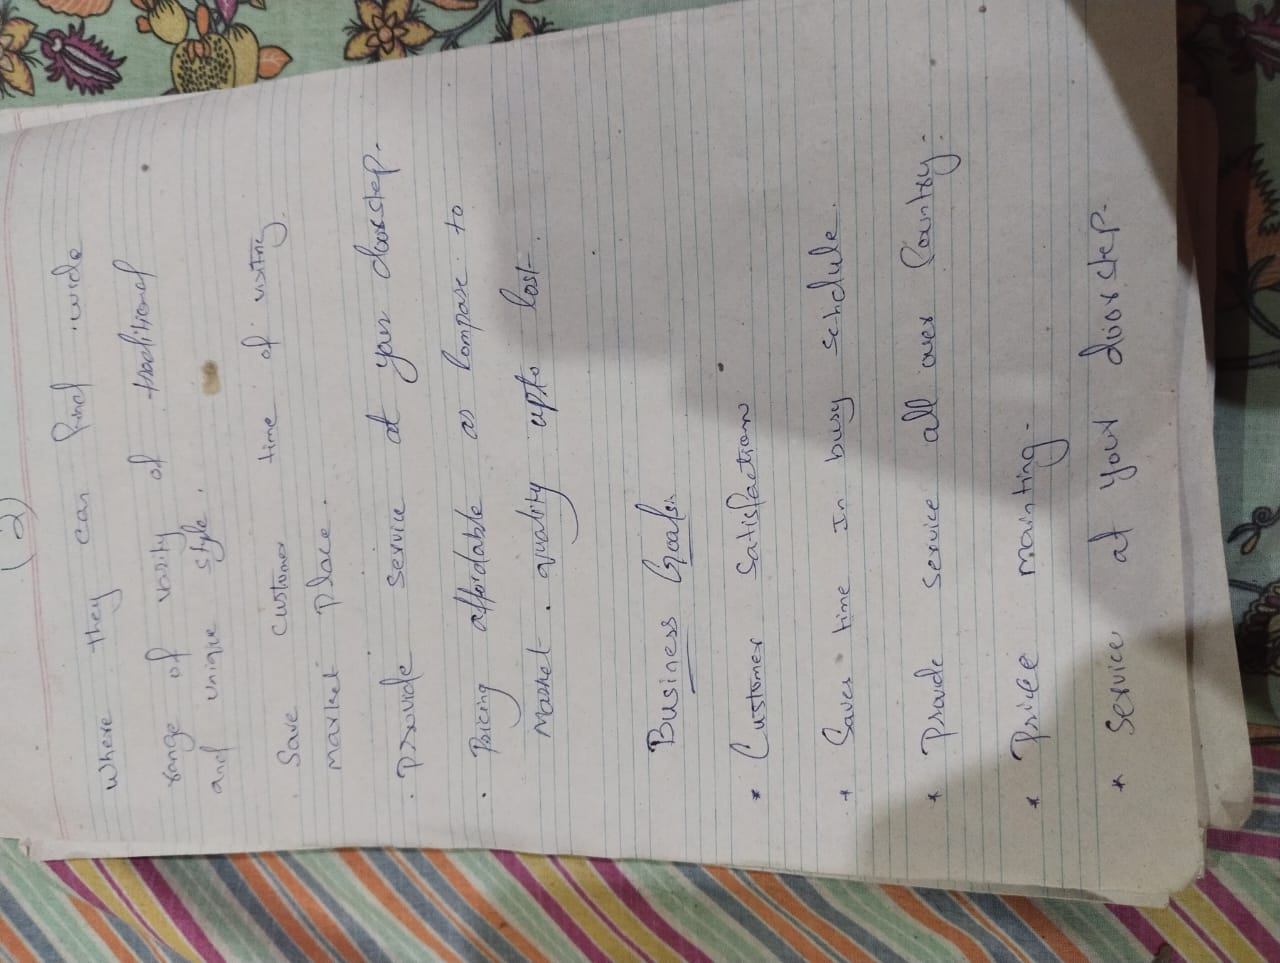 (2)
where they can find wide
range of vasity of traditional
and unique style.
Save customer time of visting
market place.
. provide service at your doorstep.
. Pricing affordable as Compare to
Market. quality upto Cost.
Business Goals
* Customer Satisfaction
* Saves time In busy schdule.
* Provide service all over Country.
* Price mainting.
* Service at your doorstep.